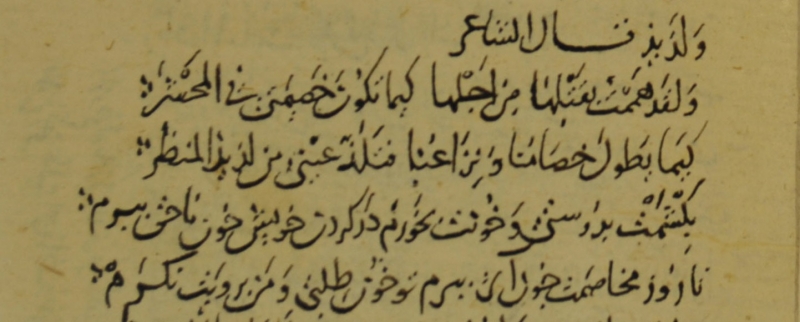 وَلَذیذ قال الشاعر
وَلقد هممتُ بقتلها مِن اجلها کیما تکونَ خَصِیمَتی فی المحشر
کیما یطول خصامنا و نزاعنا فتلذّ عینی من لذیذ المنظر
بکُشَمت بدوستی وَخونت بخورم در کردن خویش خون ناحق ببرم
تا روز مخاصمت چون آئی ببرم تو خون طلبی وَ من برویت نکرم